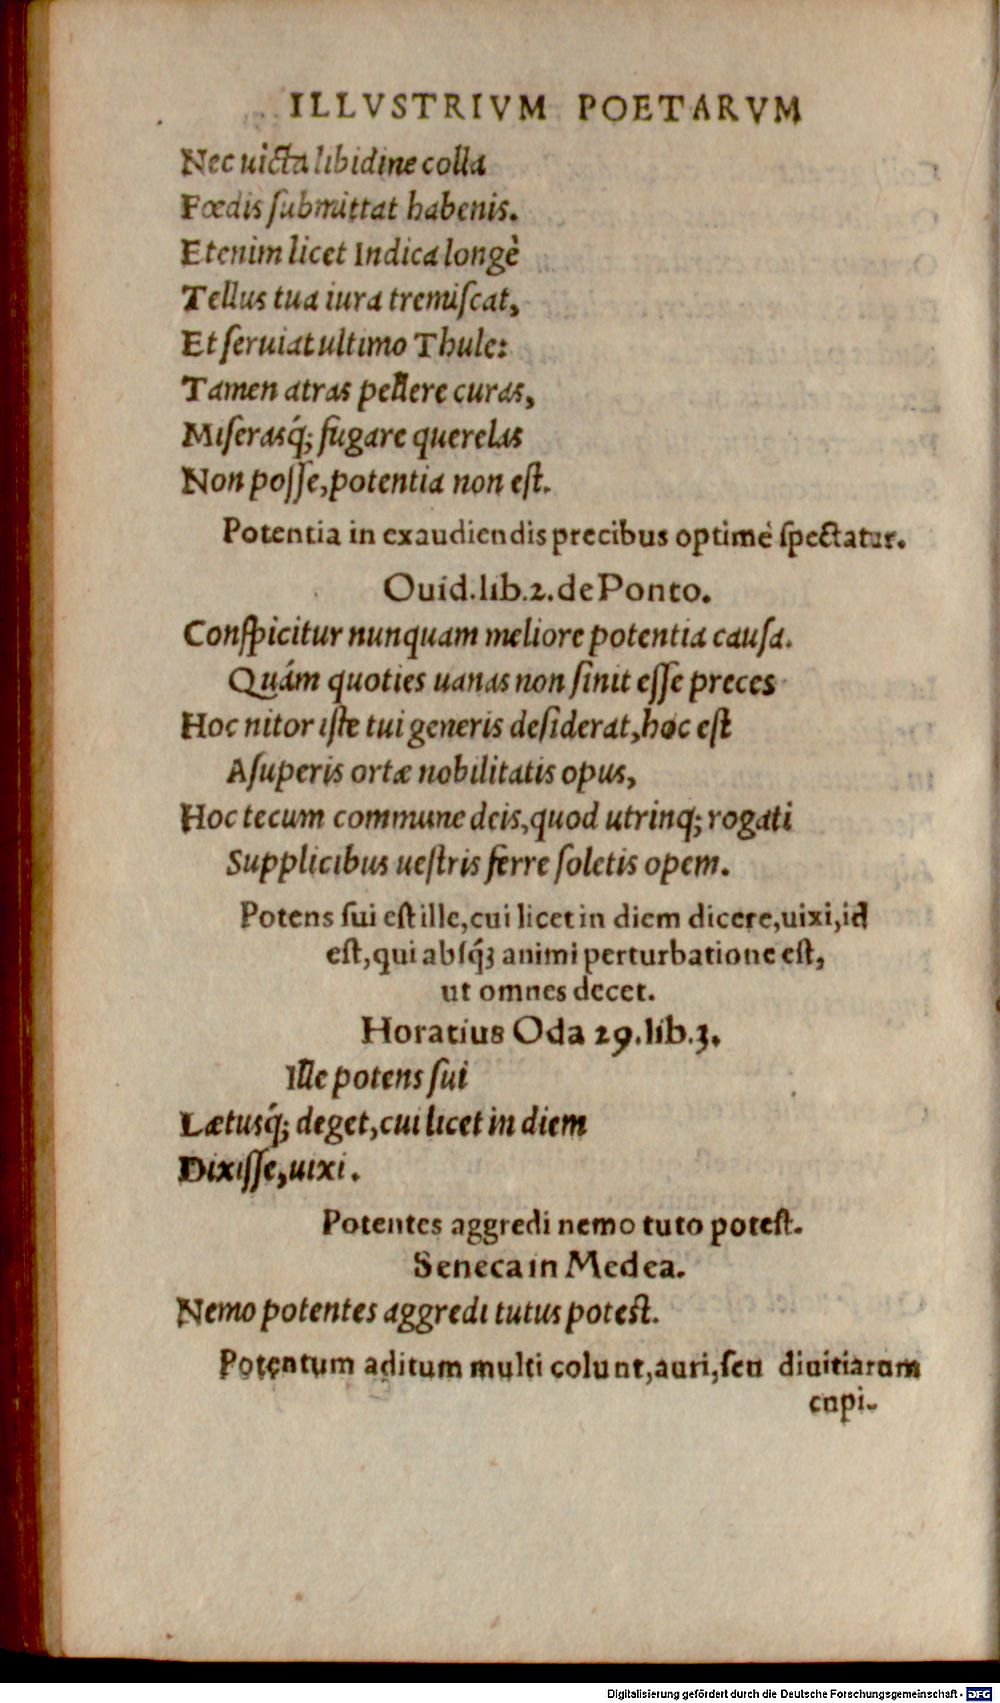 ILLVSTRIVM POETARVM
Nec uicta libidine colla
Fœdis submittat habenis.
Etenim licet Indica longè
Tellus tua iura tremiscat,
Et seruiat ultimo Thule:
Tamen atras pellere curas,
Miserasq́; fugare querelas
Non posse, potentia non est.
Potentia in exaudiendis precibus optimè spectatur.
Ouid. lib. 2. de Ponto.
Conspicitur nunquam meliore potentia causa.
Quám quoties uanas non sinit esse preces
Hoc nitor iste tui generis desiderat, hoc est
A superis ortæ nobilitatis opus,
Hoc tecum commune deis, quod utrinq; rogati
Supplicibus uestris ferre soletis opem.
Potens sui est ille, cui licet in diem dicere, uixi, id
est, qui absq́ꝫ animi perturbatione est,
ut omnes decet.
Horatius Oda 29. lib. 3.
Ille potens sui
Lætusq́; deget, cui licet in diem
Dixisse, uixi.
Potentes aggredi nemo tuto potest.
Seneca in Medea.
Nemo potentes aggredi tutus potest.
Potentum aditum multi colunt, auri, seu diuitiarum
cupi-
Digitalisierung gefördert durch die Deutsche Forschungsgemeinschaft - DFG